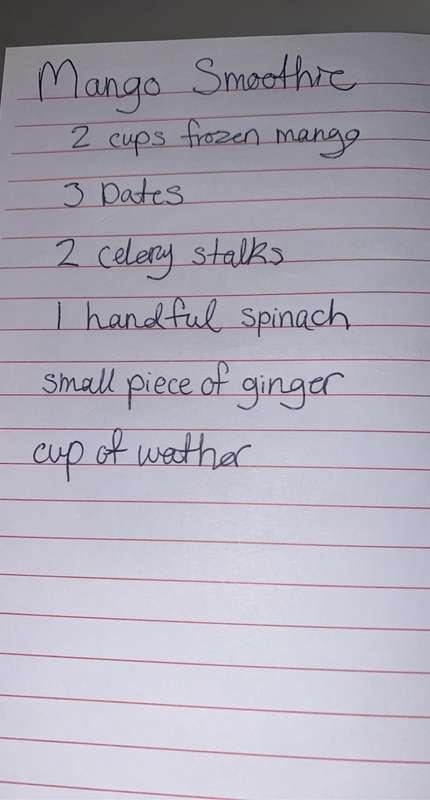 Mango Smoothie
2 cups frozen mango
3 Dates
2 celery stalks
1 handful spinach
small piece of ginger
cup of weather